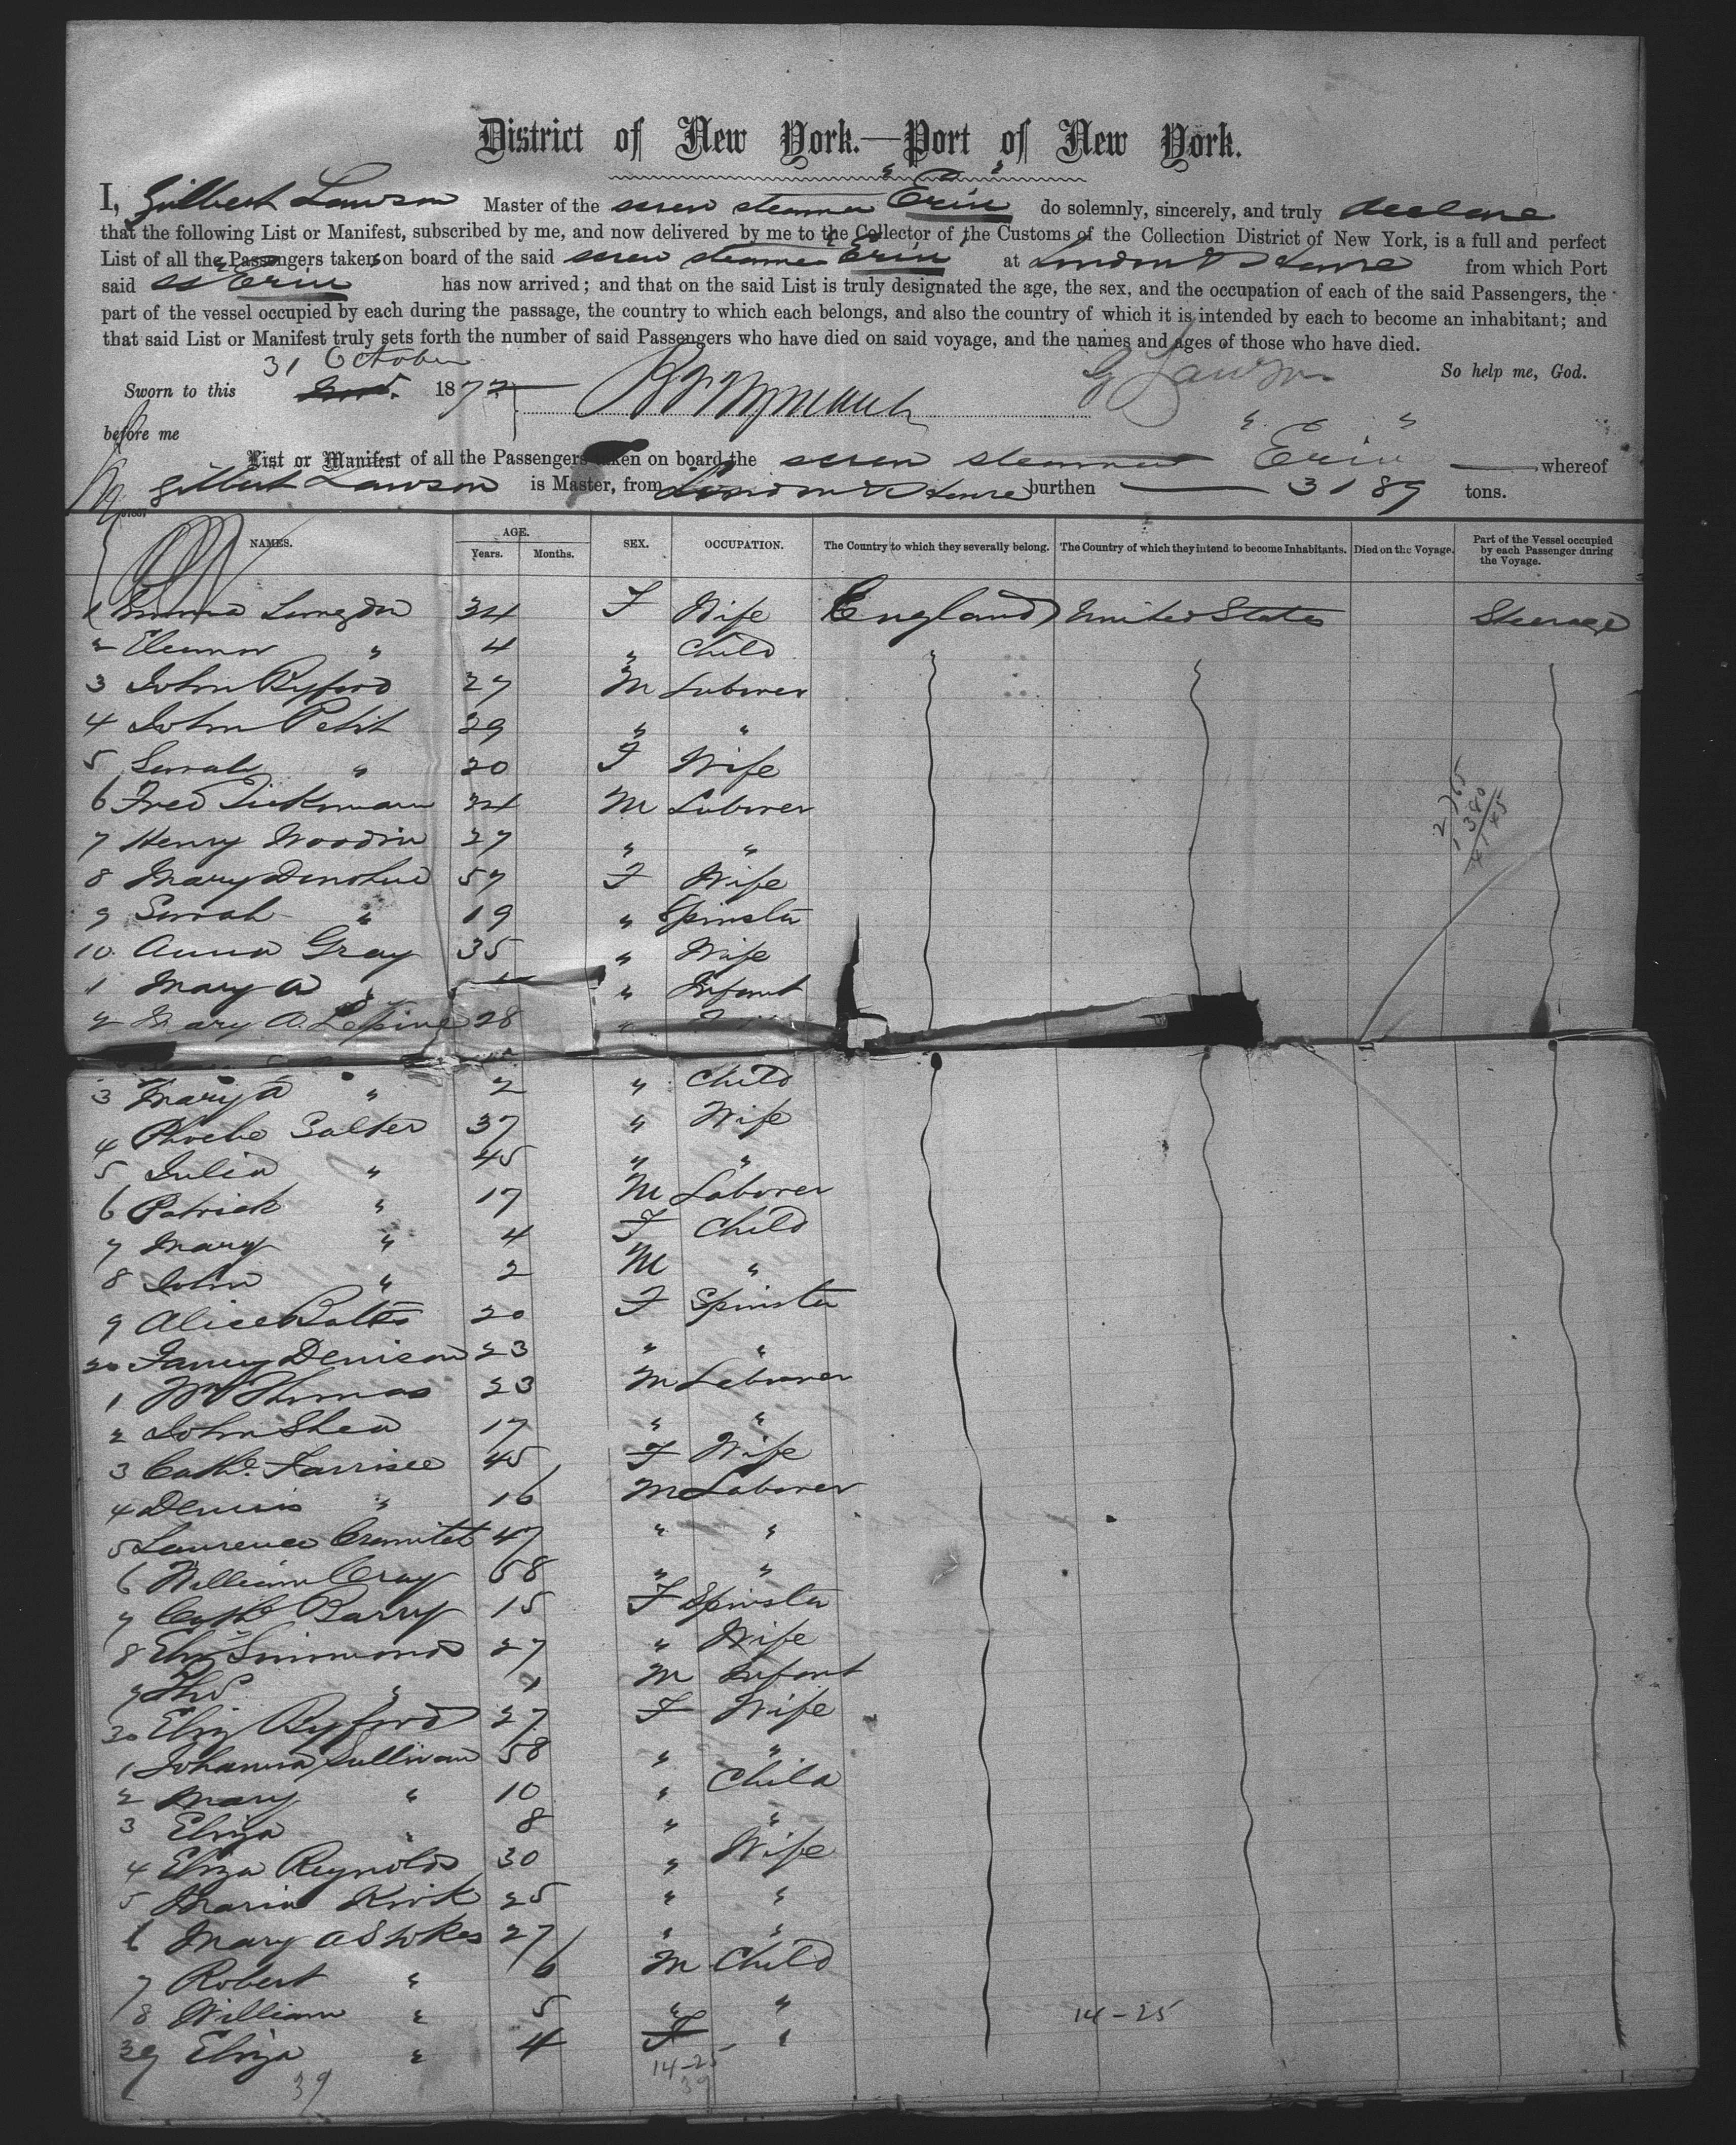 District of New York.—Port of New York.
I, Gilbert Lawson Master of the screw steamer "Erin" do solemnly, sincerely, and truly declare
that the following List or Manifest, subscribed by me, and now delivered by me to the Collector of the Customs of the Collection District of New York, is a full and perfect
List of all the Passengers taken on board of the said screw steamer "Erin" at London & Havre from which Port
said SS "Erin" has now arrived; and that on the said List is truly designated the age, the sex, and the occupation of each of the said Passengers, the
part of the vessel occupied by each during the passage, the country to which each belongs, and also the country of which it is intended by each to become an inhabitant; and
that said List or Manifest truly sets forth the number of said Passengers who have died on said voyage, and the names and ages of those who have died.
So help me, God.
Sworn to this 31 October 1872 G Lawson
before me
List or Manifest of all the Passengers taken on board the screw steamer "Erin" whereof
Gilbert Lawson is Master, from London & Havre burthen 3189 tons.
NAMES. AGE. SEX. OCCUPATION. The Country to which they severally belong. The Country of which they intend to become Inhabitants. Died on the Voyage. Part of the Vessel occupied by each Passenger during the Voyage.
Years. Months.
1 Emma Langdon 34 F Wife England United States Steerage
2 Eleanor " 4 " Child
3 John Byford 27 M Laborer
4 John Petit 29 " "
5 Sarah " 20 F Wife
6 Fred Dickman 24 M Laborer
7 Henry Woodin 27 " "
8 Mary Donohue 57 F Wife
9 Sarah " 19 " Spinster
10 Anna Gray 35 " Wife
1 Mary A " " Infant
2 Mary A. Lepine 28 "
3 Mary A " 2 " Child
4 Phoebe Salter 37 " Wife
5 Julia " 45 " "
6 Patrick " 17 M Laborer
7 Mary " 4 F Child
8 John " 2 M "
9 Alice Batts 20 F Spinster
20 Fanny Denison 23 " "
1 Wm Thomas 23 M Laborer
2 John Shea 17 " "
3 Cathe. Farrisee 45 F Wife
4 Dennis " 16 M Laborer
5 Laurence 47 " "
6 William Cray 58 " "
7 Cathe Barry 15 F Spinster
8 Eliz Simmonds 27 " Wife
9 Thos " 1 M Infant
30 Eliz Byford 27 F Wife
1 Johanna Sullivan 58 " "
2 Mary " 10 " Child
3 Eliza " 8 " "
4 Eliza Reynolds 30 " Wife
5 Maria Kirk 25 " "
6 Mary A Stokes 27 " "
7 Robert " 6 M Child
8 William " 5 " "
39 Eliza " 4 F "
14-25
14-25
39
39